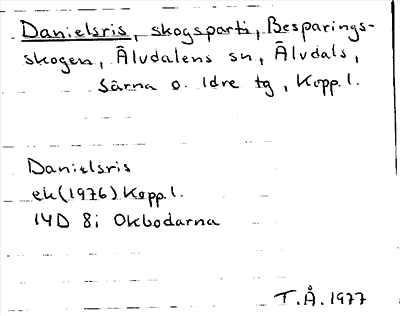 Danielsris, skogsparti, Besparings-
skogen, Älvdalens sn, Älvdals,
Särna o. Idre tg, Kopp. l.
Danielsris
ek (1976) Kopp. l.
14D 8i Okbodarna
T.Å. 1977